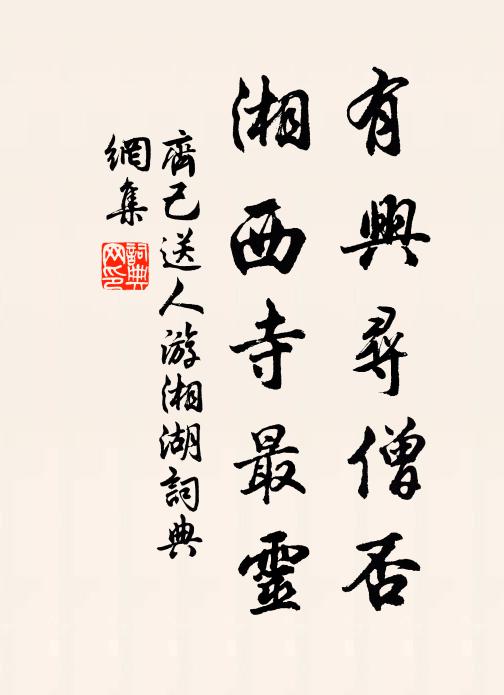 有興尋僧否
湘西寺最靈
齊己送人游湘湖詞典
網集
詞典網印